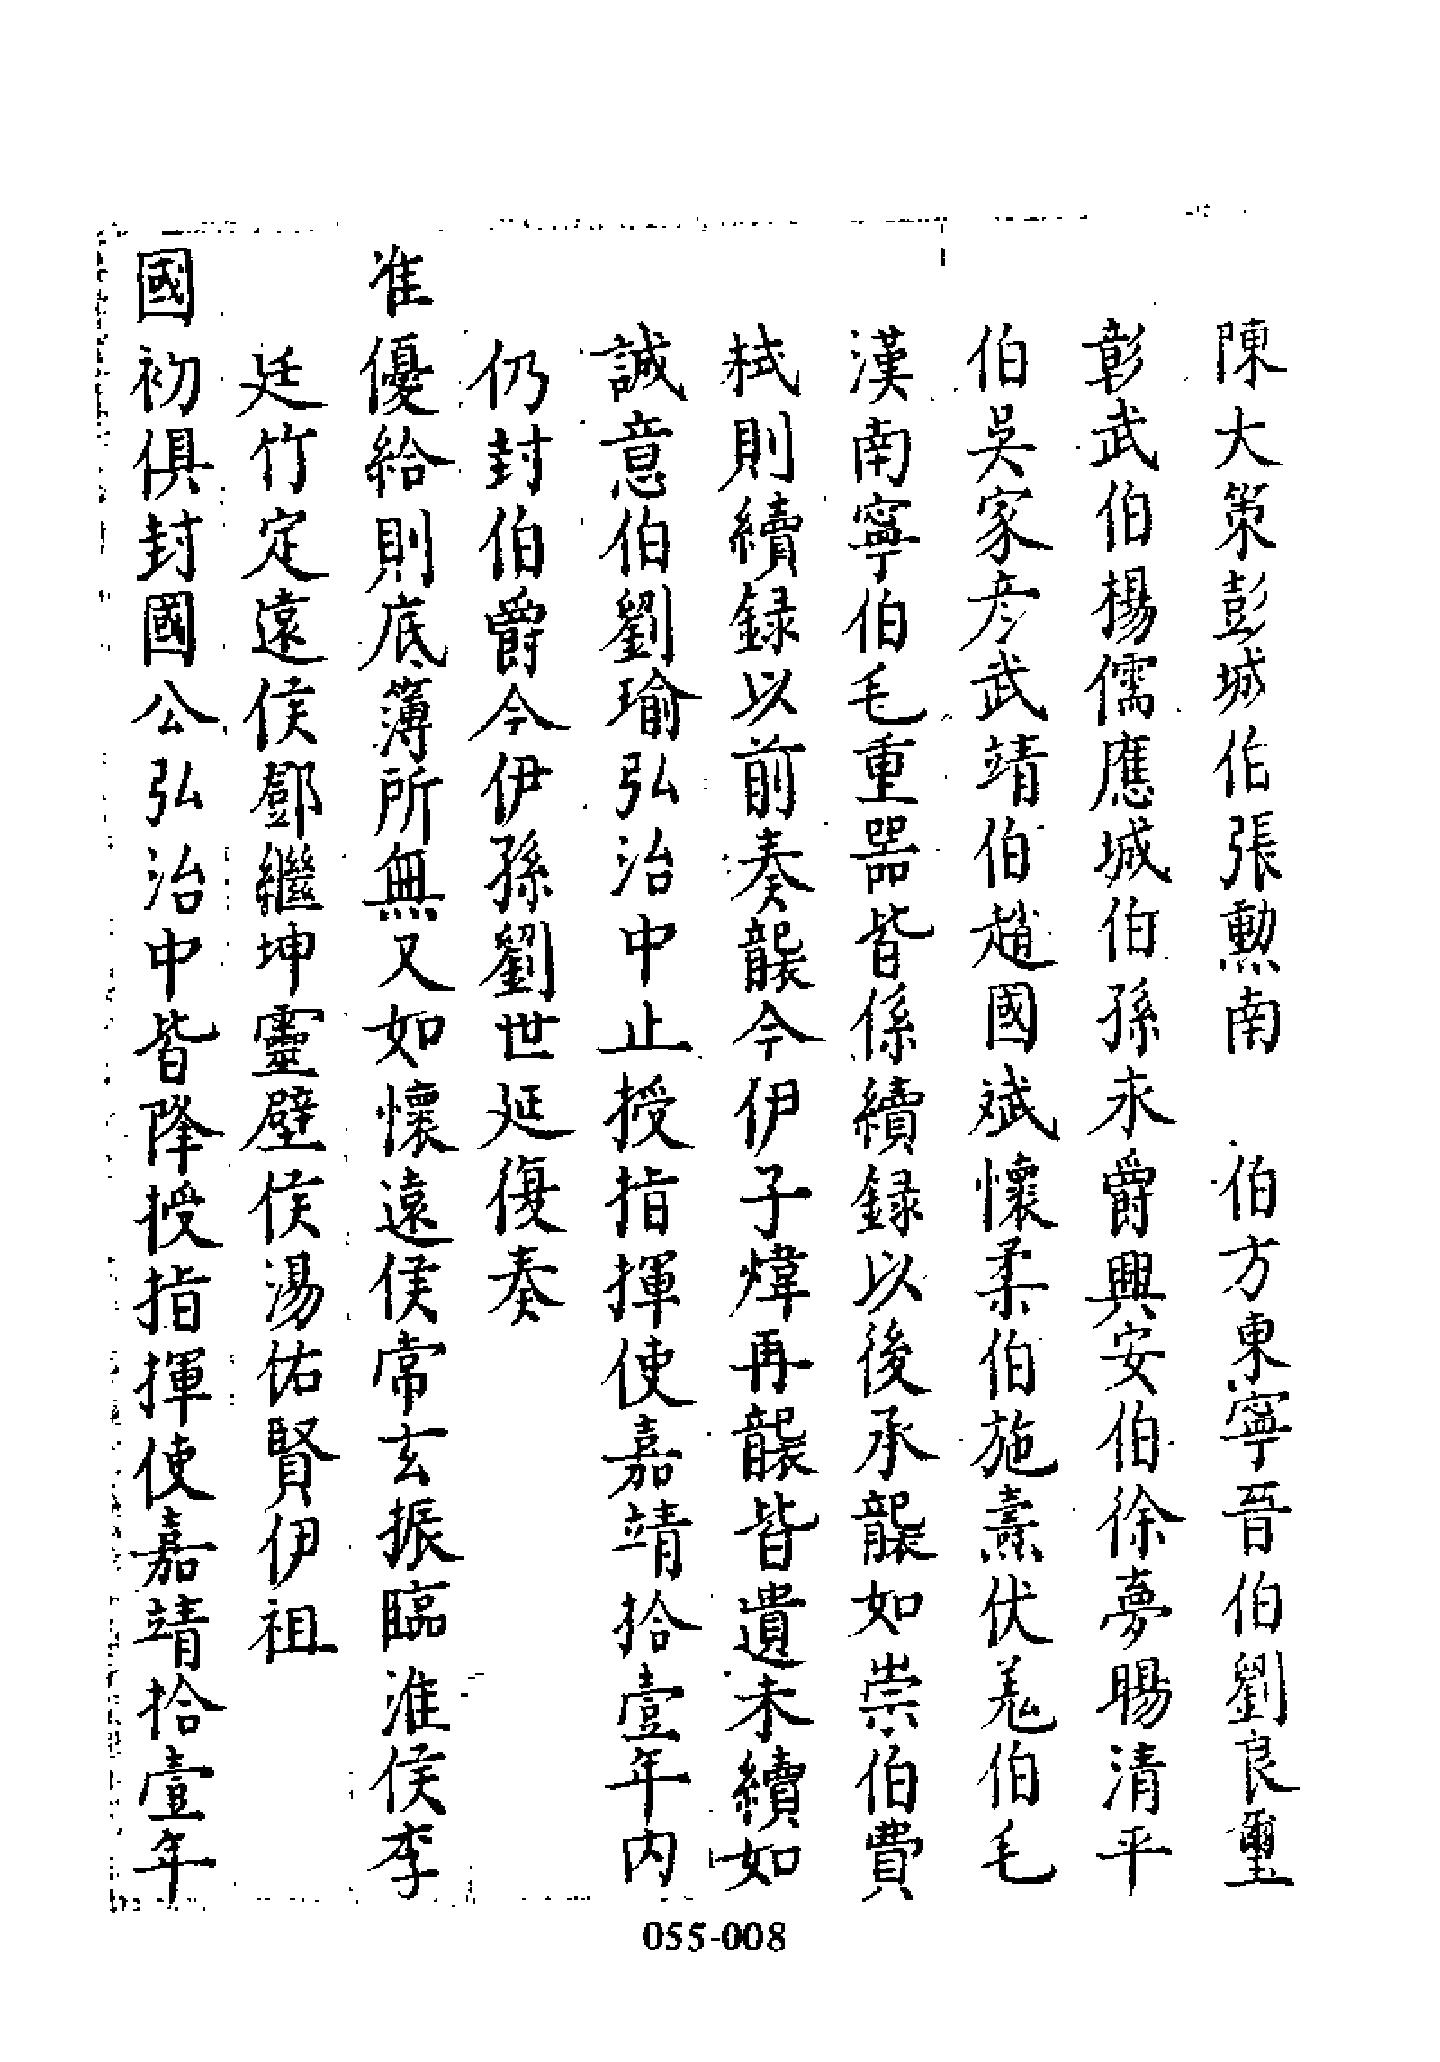 陳大策彭城伯張勲南　伯方東寧晉伯劉良璽
彰武伯楊儒應城伯孫永爵興安伯徐夢暘清平
伯吳家彦武靖伯趙國斌懷柔伯施燾伏羗伯毛
漢南寧伯毛重噐皆係續録以後承襲如崇伯費
栻則續録以前奏襲今伊子煒再襲皆遺未續如
誠意伯劉瑜弘治中止授指揮使嘉靖拾壹年内
仍封伯爵今伊孫劉世延復奏
准優給則底簿所無又如懷遠侯常玄振臨淮侯李
廷竹定遠侯鄧繼坤靈壁侯湯佑賢伊祖
國初俱封國公弘治中皆降授指揮使嘉靖拾壹年
055-008